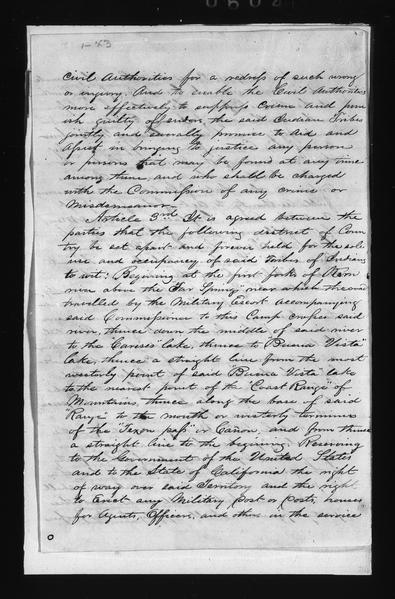 1-43
civil Authorities for a redress of such wrong
or injury. And to enable the Civil Authorities
more effectively to suppress Crime and pun
ish guilty offenders, the said Indian Tribes
jointly and severally promise to Aid and
Assist in bringing to justice any person
or persons that may be found at any time
among them, and who shall be charged
with the Commission of any crime or
Misdemeanor.
Article 3rd It is agreed between the
parties that the following district of Coun
try be set apart and forever held for the sole
use and occupancy of said Tribes of Indians
to wit: Begining at the first forks of Kern
river above the "Tar Spring" near which the road
travelled by the Military Escort Accompanying
said Commissioner to this Camp crosses said
river, thence down the middle of said river
to the "Carises" lake, thence to "Buena Vista"
lake, thence a straight line from the most
westerly point of said "Buena Vista" lake
to the nearest point of the "Coast Range" of
Mountains, thence along the base of said
"Range" to the mouth or westerly terminus
of the "Texon pass" or Cañon, and from thence
a straight line to the begining. Reserving
to the Government of the United States
and to the State of California the right
of way over said Territory and the right
to Erect any Military post or posts, houses
for Agents, Officers, and others in the service